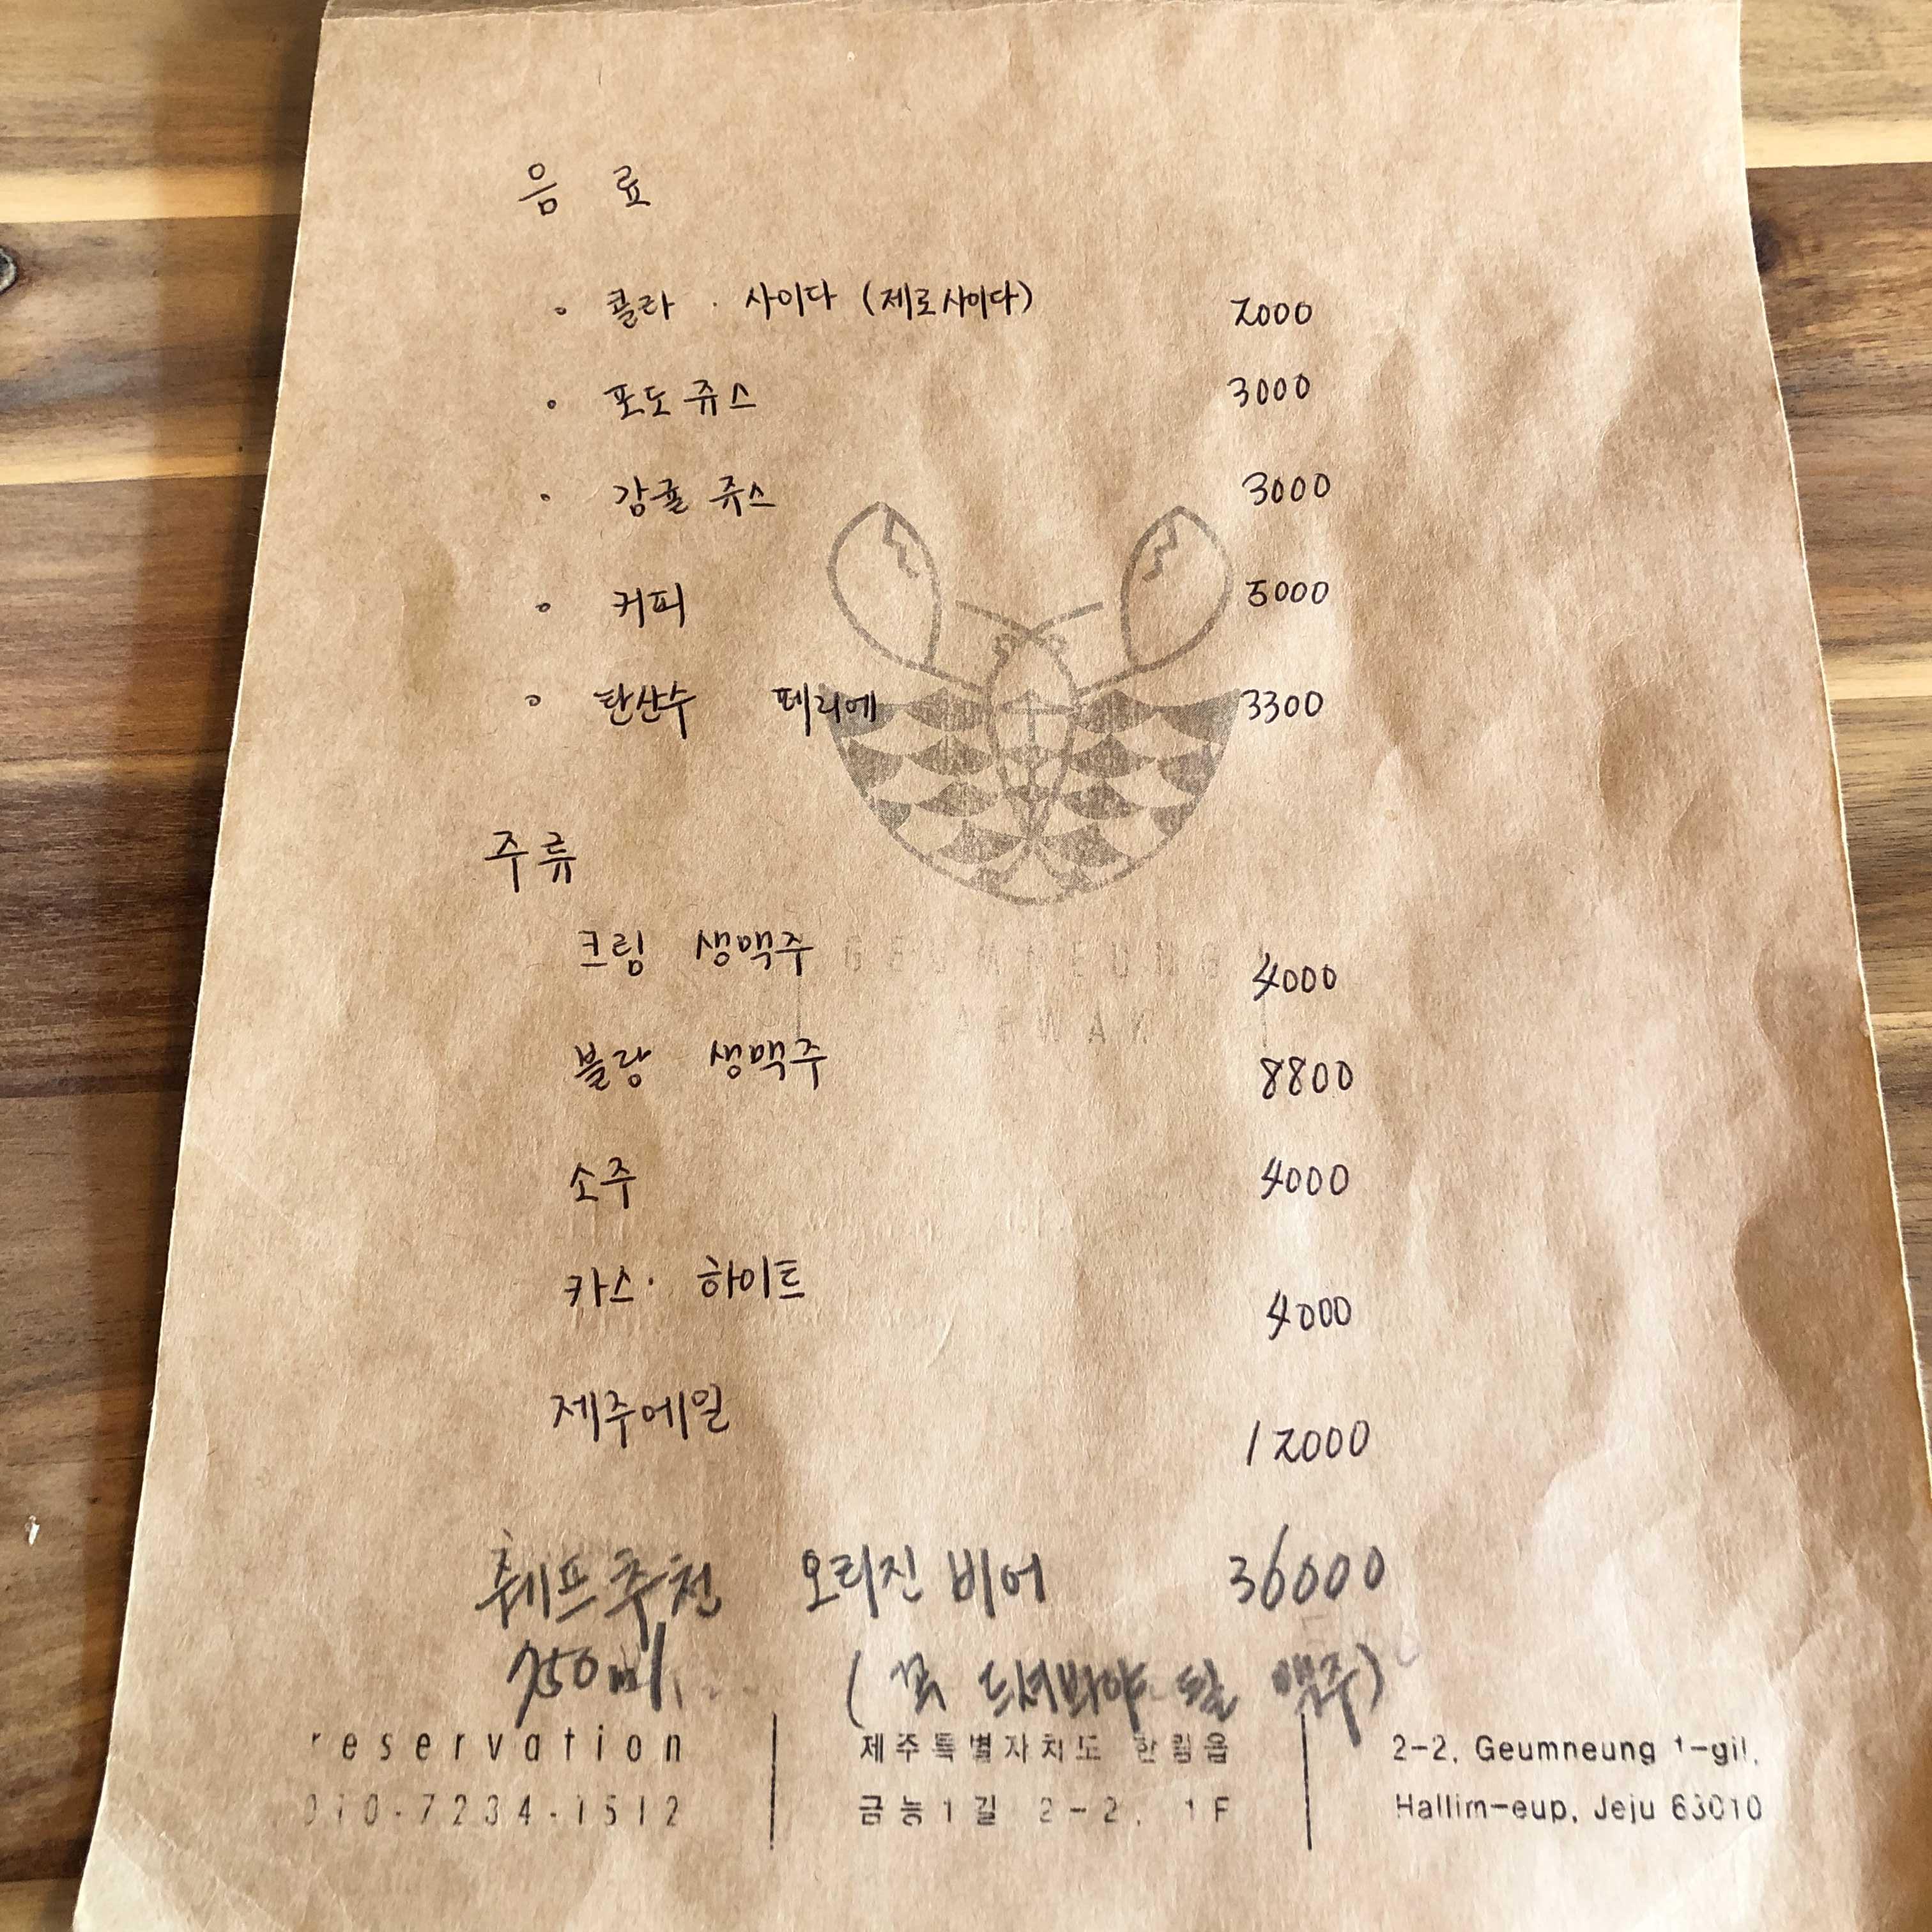 음료
콜라 · 사이다 (제로사이다) 2000
포도쥬스 3000
감귤 쥬스 3000
커피 5000
탄산수 페리에 3300
주류
크림 생맥주 4000
블랑 생맥주 8800
소주 4000
카스 · 하이트 4000
제주에일 12000
췌프추천 오리진 비어 36000
750ml (꼭 드셔봐야 될 맥주)
reservation
010-7234-1512
제주특별자치도 한림읍
금능1길 2-2, 1F
2-2, Geumneung 1-gil,
Hallim-eup, Jeju 63010